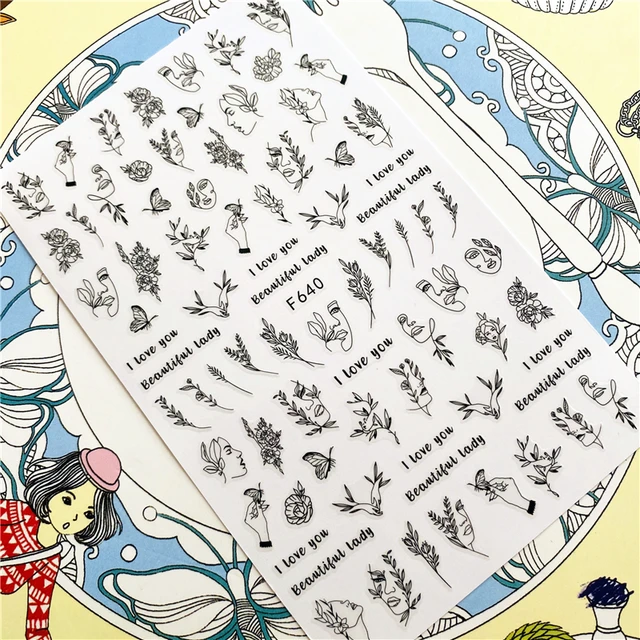 I love you
Beautiful lady
I love you
Beautiful lady
F640
I love you
Beautiful lady
I love you
I love you
Beautiful lady
I love you
Beautiful lady
I love you
Beautiful lady